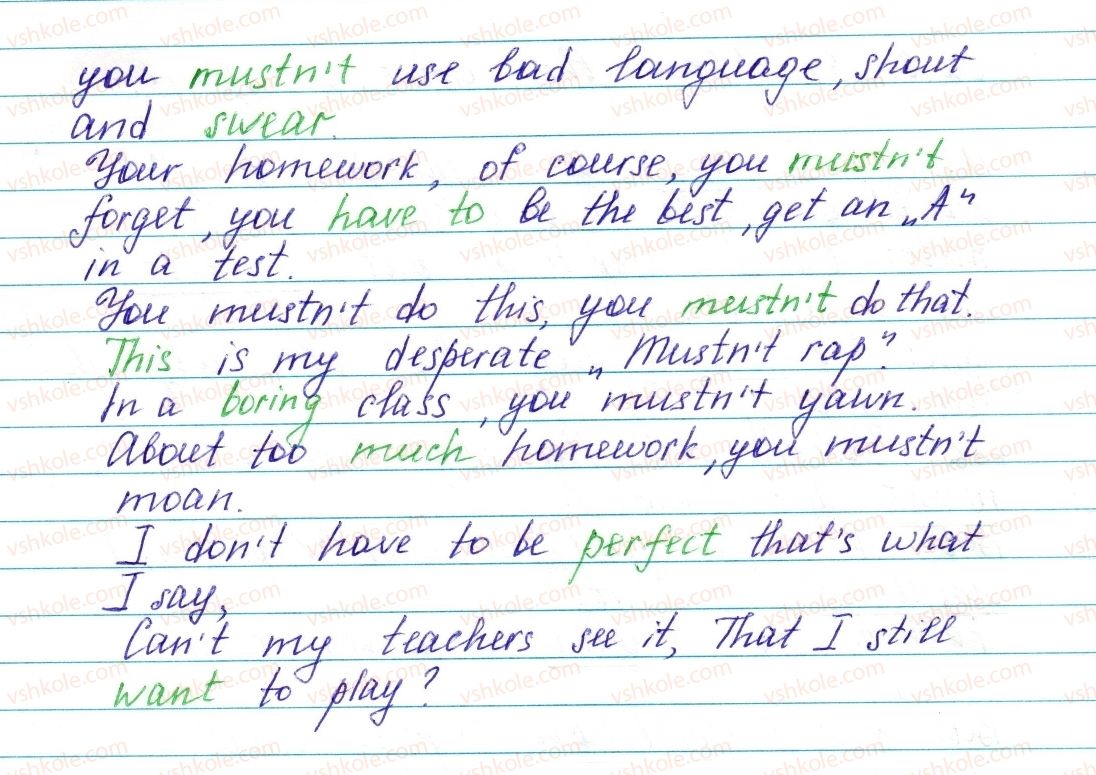 you mustn't use bad language, shout
and swear.
Your homework, of course, you mustn't
forget, you have to be the best, get an „A"
in a test.
You mustn't do this, you mustn't do that.
This is my desperate „Mustn't rap".
In a boring class, you mustn't yawn.
About too much homework, you mustn't
moan.
I don't have to be perfect that's what
I say,
Can't my teachers see it, That I still
want to play?